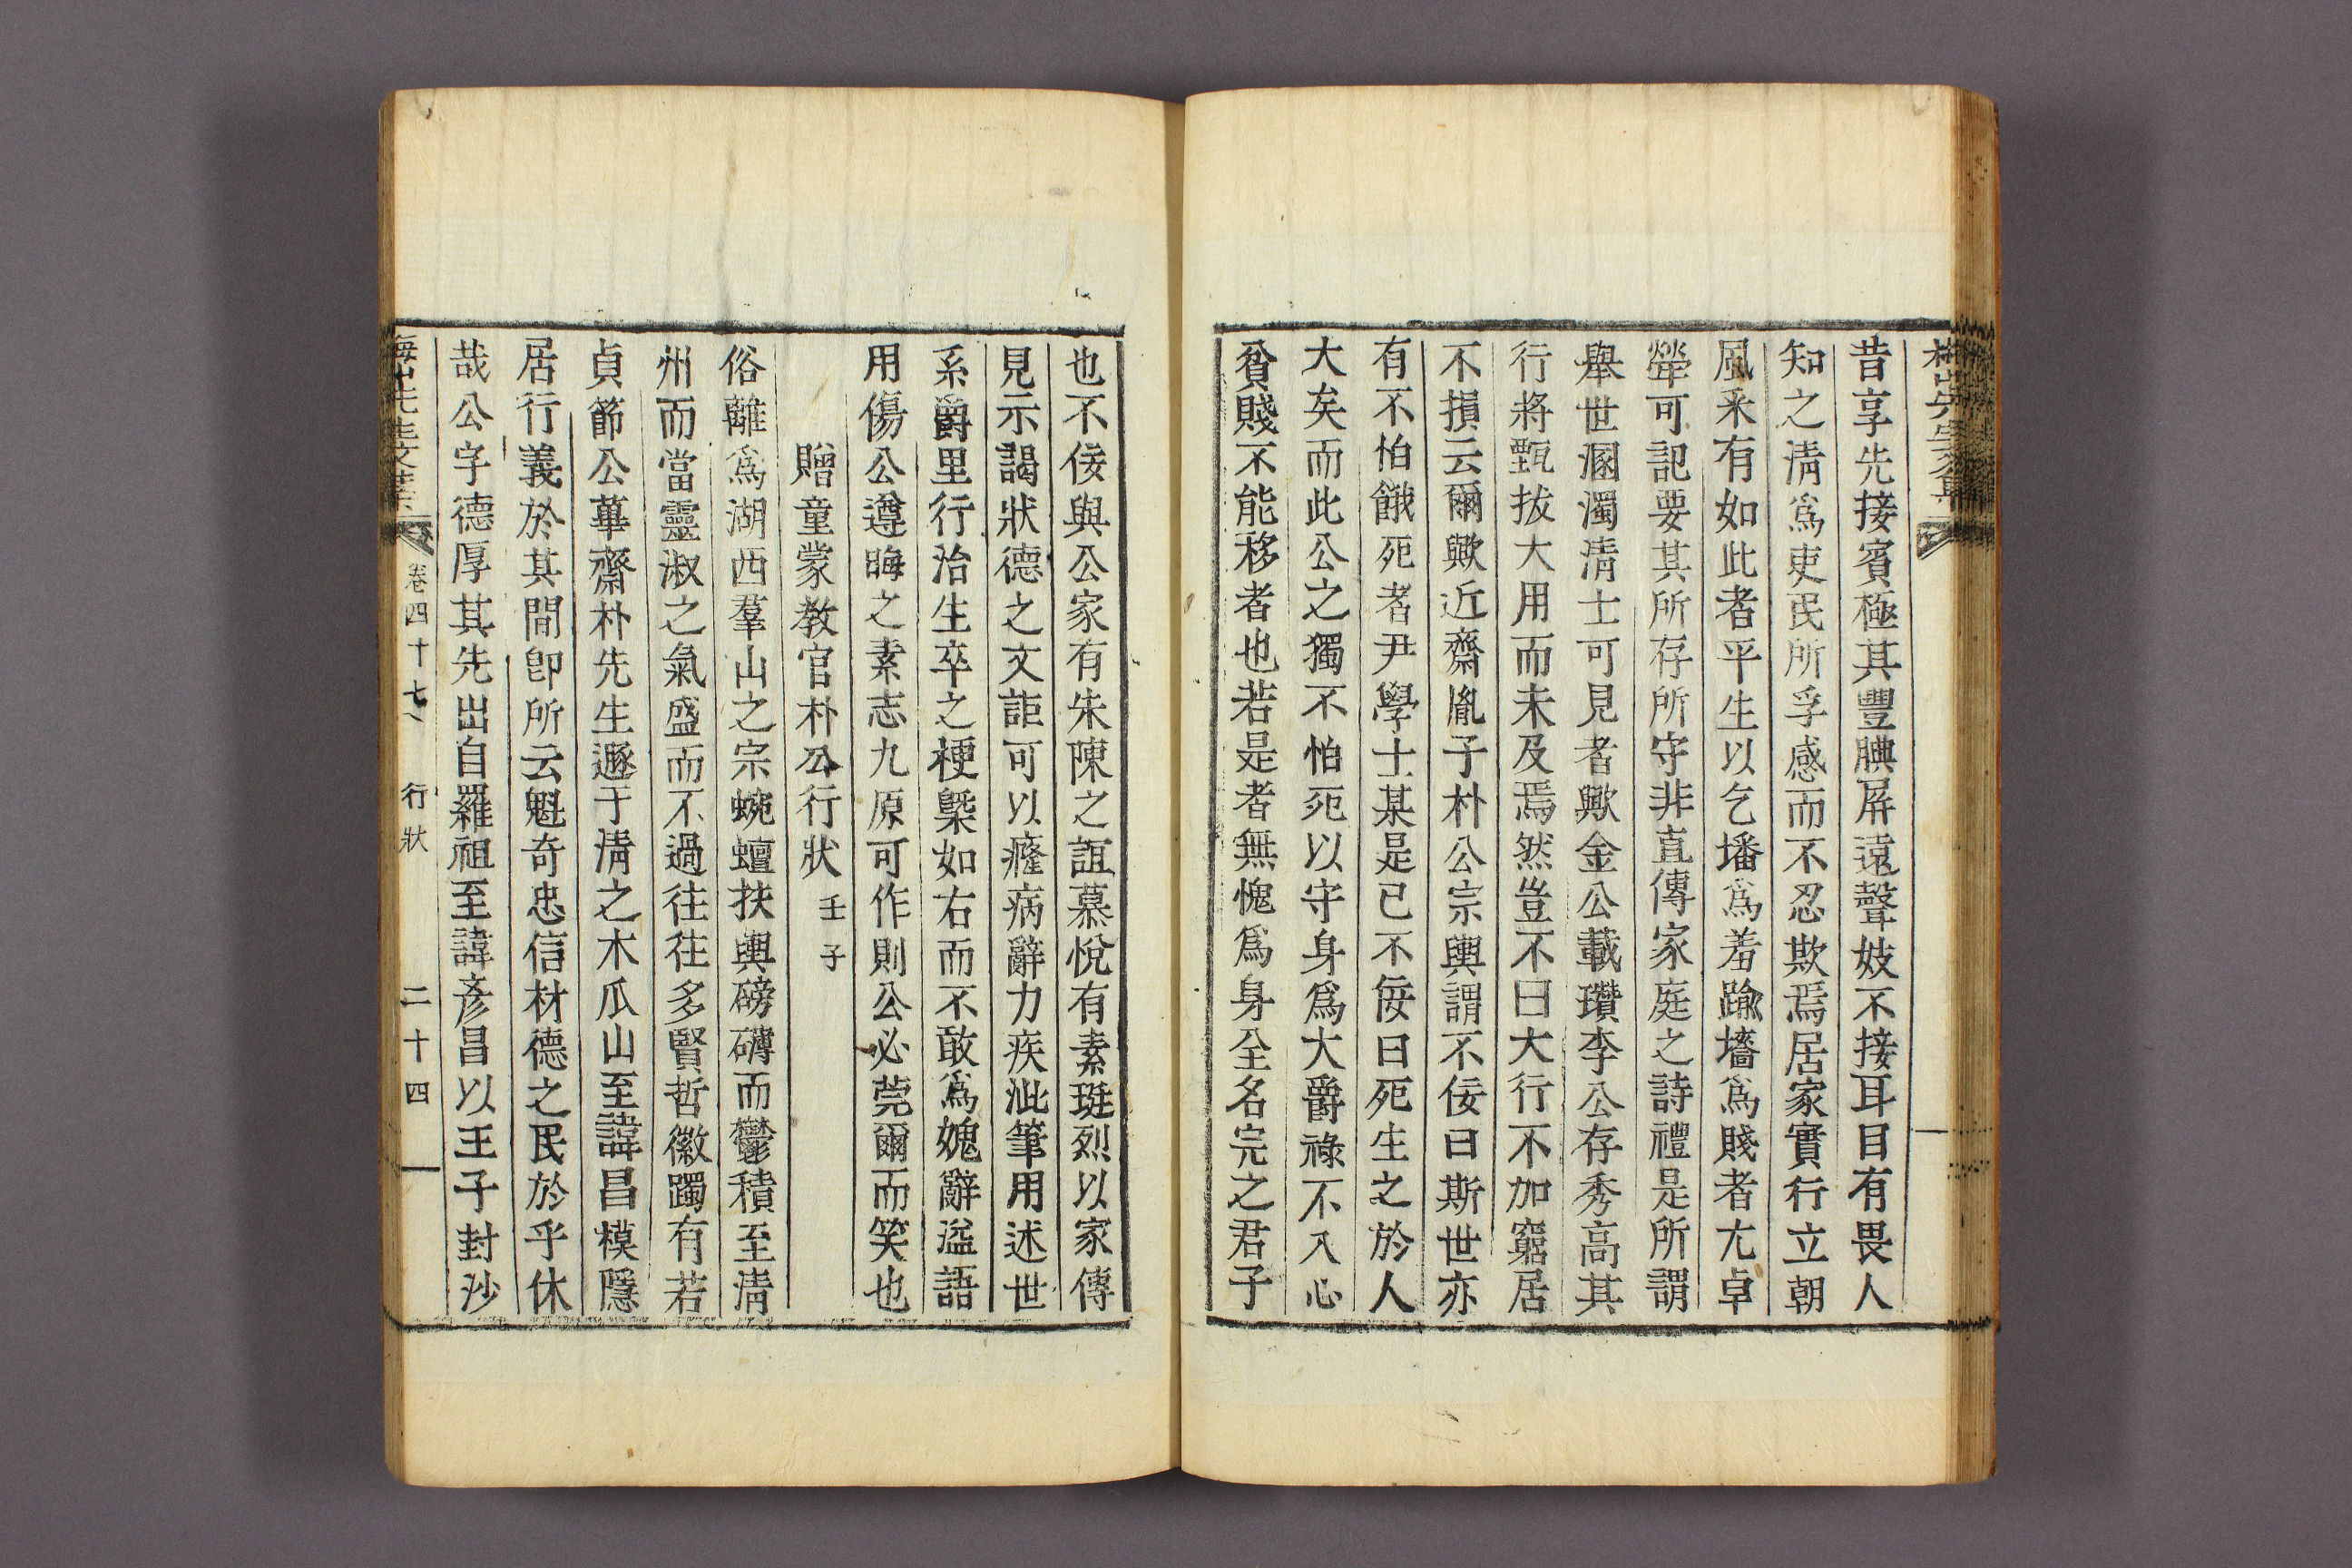 昔享先接賓極其豐腆屛遠聲妓不接耳目有畏人
知之淸爲吏民所孚感而不忍欺焉居家實行立朝
風采有如此者平生以乞墦爲羞踰墻爲賤者尤卓
犖可記要其所存所守非直傳家庭之詩禮是所謂
擧世溷濁淸士可見者歟金公載瓚李公存秀高其
行將甄拔大用而未及焉然豈不曰大行不加窮居
不損云爾歟近齋胤子朴公宗輿謂不佞曰斯世亦
有不怕餓死者尹學士某是已不佞曰死生之於人
大矣而此公之獨不怕死以守身爲大爵祿不入心
貧賤不能移者也若是者無愧爲身全名完之君子
也不佞與公家有朱陳之誼慕悅有素珽烈以家傳
見示謁狀德之文詎可以癃病辭力疾泚筆用述世
系爵里行治生卒之梗槩如右而不敢爲媿辭溢語
用傷公遵晦之素志九原可作則公必莞爾而笑也
贈童蒙敎官朴公行狀 壬子
俗離爲湖西羣山之宗蜿蟺扶輿磅礴而鬱積至淸
州而當靈淑之氣盛而不過往往多賢哲徽躅有若
貞節公蓽齋朴先生遯于淸之木瓜山至諱昌模隱
居行義於其間卽所云魁奇忠信材德之民於乎休
哉公字德厚其先出自羅祖至諱彥昌以王子封沙
梅山先生文集 卷四十七 行狀 二十四